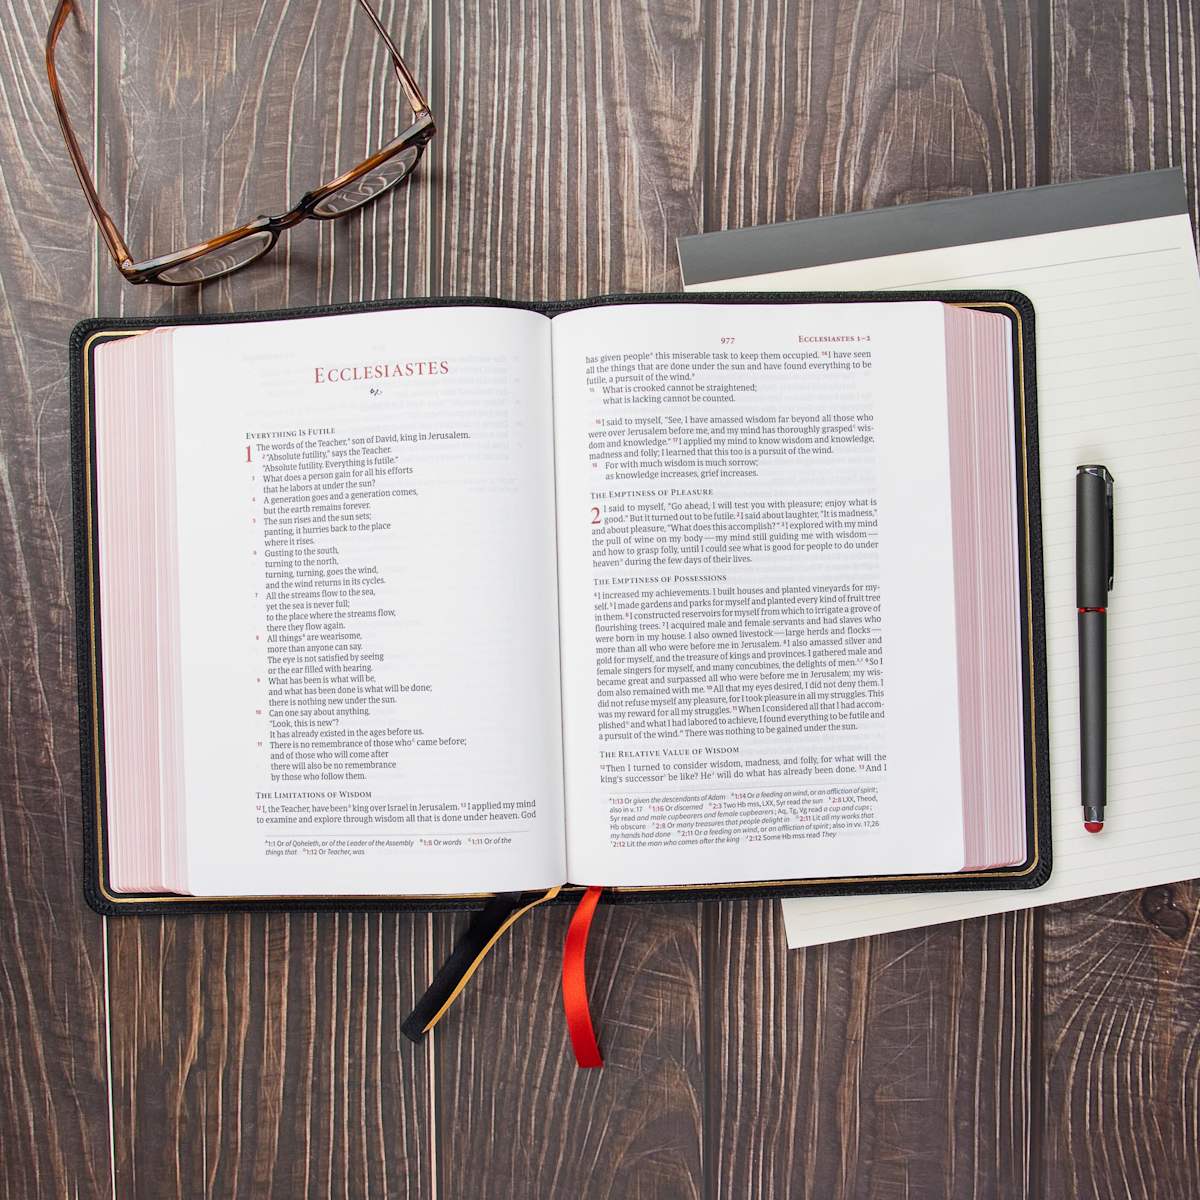 ECCLESIASTES
EVERYTHING IS FUTILE
1 The words of the Teacher,ᴬ son of David, king in Jerusalem.
2 "Absolute futility," says the Teacher.
"Absolute futility. Everything is futile."
3 What does a person gain for all his efforts
that he labors at under the sun?
4 A generation goes and a generation comes,
but the earth remains forever.
5 The sun rises and the sun sets;
panting, it hurries back to the place
where it rises.
6 Gusting to the south,
turning to the north,
turning, turning, goes the wind,
and the wind returns in its cycles.
7 All the streams flow to the sea,
yet the sea is never full;
to the place where the streams flow,
there they flow again.
8 All thingsᴮ are wearisome,
more than anyone can say.
The eye is not satisfied by seeing
or the ear filled with hearing.
9 What has been is what will be,
and what has been done is what will be done;
there is nothing new under the sun.
10 Can one say about anything,
"Look, this is new"?
It has already existed in the ages before us.
11 There is no remembrance of those whoᶜ came before;
and of those who will come after
there will also be no remembrance
by those who follow them.
THE LIMITATIONS OF WISDOM
12 I, the Teacher, have beenᴰ king over Israel in Jerusalem. 13 I applied my mind
to examine and explore through wisdom all that is done under heaven. God
ᴬ1:1 Or of Qoheleth, or of the Leader of the Assembly ᴮ1:8 Or words ᶜ1:11 Or of the
things that ᴰ1:12 Or Teacher, was
977 ECCLESIASTES 1–2
has given peopleᴬ this miserable task to keep them occupied. 14 I have seen
all the things that are done under the sun and have found everything to be
futile, a pursuit of the wind.ᴮ
15 What is crooked cannot be straightened;
what is lacking cannot be counted.
16 I said to myself, "See, I have amassed wisdom far beyond all those who
were over Jerusalem before me, and my mind has thoroughly graspedᶜ wis-
dom and knowledge." 17 I applied my mind to know wisdom and knowledge,
madness and folly; I learned that this too is a pursuit of the wind.
18 For with much wisdom is much sorrow;
as knowledge increases, grief increases.
THE EMPTINESS OF PLEASURE
2 I said to myself, "Go ahead, I will test you with pleasure; enjoy what is
good." But it turned out to be futile. 2 I said about laughter, "It is madness,"
and about pleasure, "What does this accomplish?" 3 I explored with my mind
the pull of wine on my body — my mind still guiding me with wisdom —
and how to grasp folly, until I could see what is good for people to do under
heavenᴰ during the few days of their lives.
THE EMPTINESS OF POSSESSIONS
4 I increased my achievements. I built houses and planted vineyards for my-
self. 5 I made gardens and parks for myself and planted every kind of fruit tree
in them. 6 I constructed reservoirs for myself from which to irrigate a grove of
flourishing trees. 7 I acquired male and female servants and had slaves who
were born in my house. I also owned livestock — large herds and flocks —
more than all who were before me in Jerusalem. 8 I also amassed silver and
gold for myself, and the treasure of kings and provinces. I gathered male and
female singers for myself, and many concubines, the delights of men.ᴱ,ᶠ 9 So I
became great and surpassed all who were before me in Jerusalem; my wis-
dom also remained with me. 10 All that my eyes desired, I did not deny them. I
did not refuse myself any pleasure, for I took pleasure in all my struggles. This
was my reward for all my struggles. 11 When I considered all that I had accom-
plishedᴳ and what I had labored to achieve, I found everything to be futile and
a pursuit of the wind.ᴴ There was nothing to be gained under the sun.
THE RELATIVE VALUE OF WISDOM
12 Then I turned to consider wisdom, madness, and folly, for what will the
king's successorᴵ be like? Heᴶ will do what has already been done. 13 And I
ᴬ1:13 Or given the descendants of Adam ᴮ1:14 Or a feeding on wind, or an affliction of spirit;
also in v. 17 ᶜ1:16 Or discerned ᴰ2:3 Two Hb mss, LXX, Syr read the sun ᴱ2:8 LXX, Theod,
Syr read and male cupbearers and female cupbearers; Aq, Tg, Vg read a cup and cups;
Hb obscure ᶠ2:8 Or many treasures that people delight in ᴳ2:11 Lit all my works that
my hands had done ᴴ2:11 Or a feeding on wind, or an affliction of spirit; also in vv. 17,26
ᴵ2:12 Lit the man who comes after the king ᴶ2:12 Some Hb mss read They